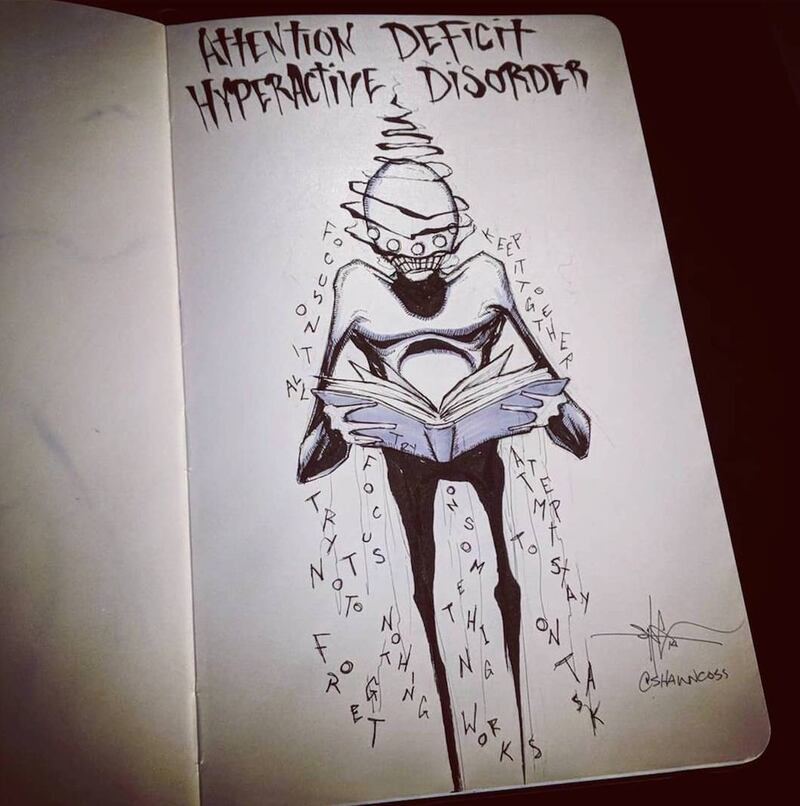 ATTENTION DEFICIT
HYPERACTIVE DISORDER
FOCUS ON IT ALL
KEEP IT TOGETHER
TRY
TRY NOT TO FORGET
FOCUS
NOTHING
ON SOMETHING
WORKS
ATTEMPT TO STAY ON TASK
@SHAWNCOSS